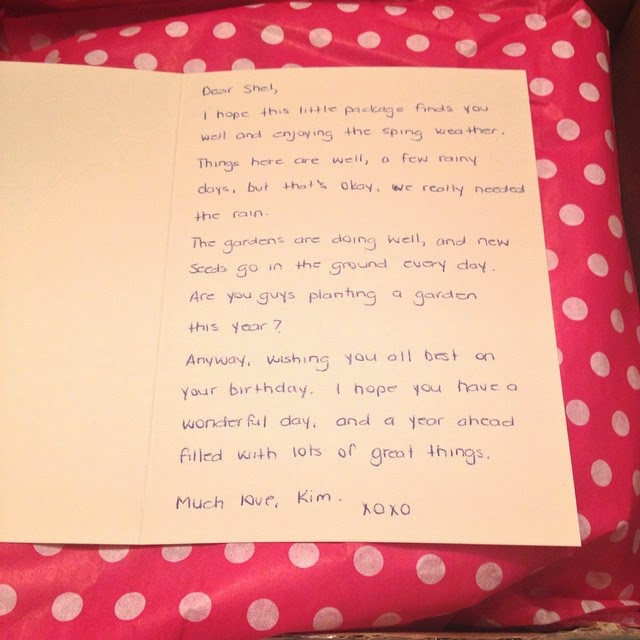 Dear Shel,
I hope this little package finds you
well and enjoying the sping weather.
Things here are well, a few rainy
days, but that's okay. we really needed
the rain.
The gardens are doing well, and new
seeds go in the ground every day.
Are you guys planting a garden
this year?
Anyway, wishing you all best on
your birthday. I hope you have a
wonderful day, and a year ahead
filled with lots of great things.
Much love, Kim. xoxo